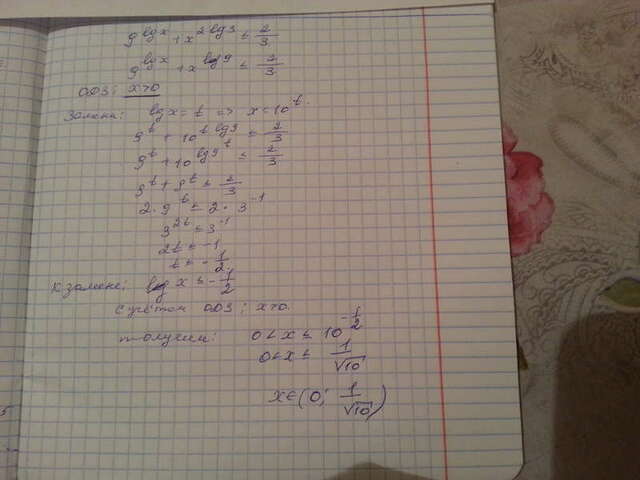 9^{lg x} + x^{2 lg 3} ≤ 2/3
9^{lg x} + x^{lg 9} ≤ 2/3
ОДЗ: x>0
Замена: lg x = t => x = 10^t.
9^t + 10^{t lg 9} ≤ 2/3
9^t + 10^{lg 9^t} ≤ 2/3
9^t + 9^t ≤ 2/3
2 · 9^t ≤ 2 · 3^{-1}
3^{2t} ≤ 3^{-1}
2t ≤ -1
t ≤ -1/2
К замене: lg x ≤ -1/2
С учётом ОДЗ: x>0.
получим: 0 < x ≤ 10^{-1/2}
0 < x ≤ 1/√10
x ∈ (0; 1/√10)